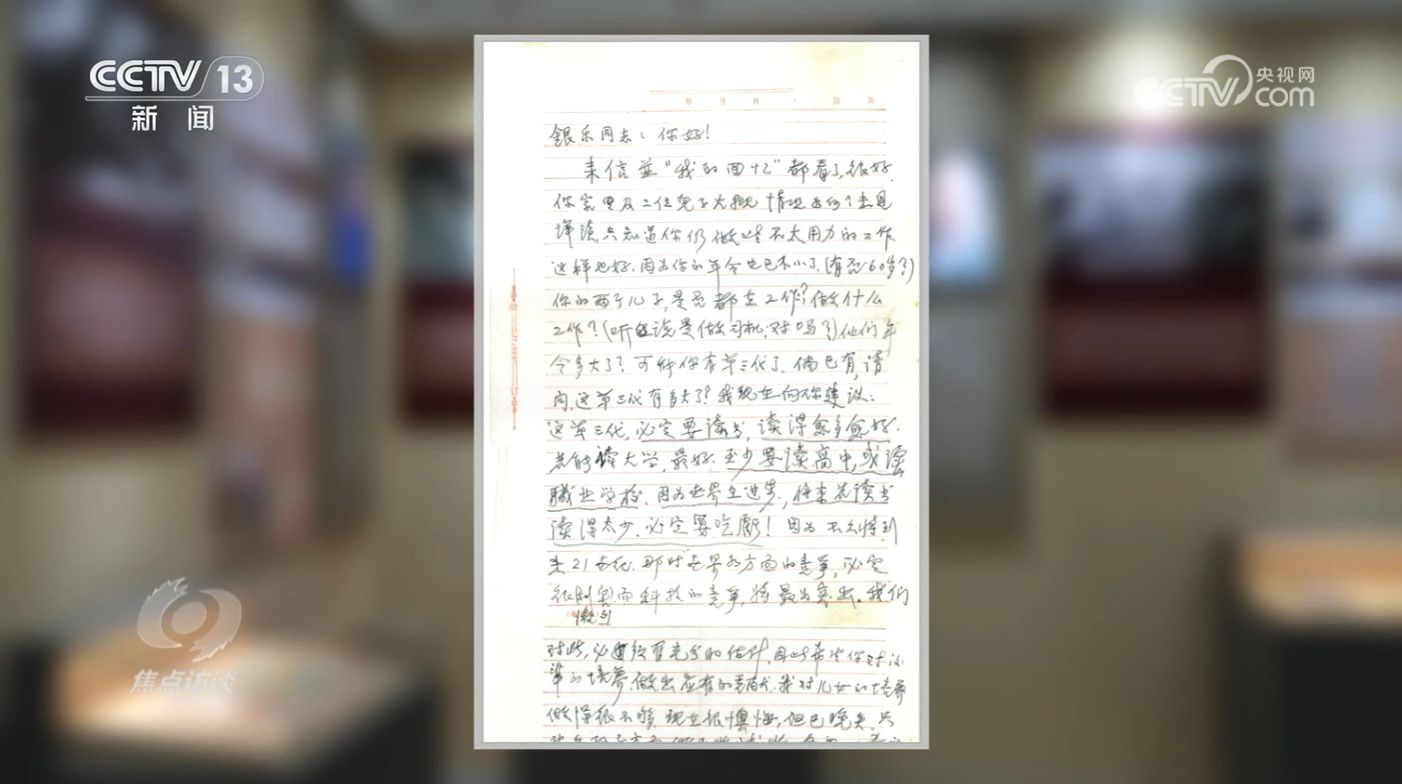 CCTV 13
新闻
CCTV 央视网
com
年 月 日 第 页
银乐同志：你好！
来信并“我的回忆”都看了，很好。
你家里及二位儿子大概情况如何？未见
详谈，只知道你仍做些不太用力的工作，
这样也好。因为你的年令也已不小了。（有否60岁了）
你的两个儿子，是否都在工作？做什么
工作？（听说是做司机，对吗？）他们年
令多大了？可能你有第三代了。倘已有，请
问，这第三代有多大了？我现在向你建议：
这第三代，必定要读书，读得愈多愈好。
若能读大学，最好。至少要读高中，或读
职业学校。因为世界在进步，将来若读书
读得太少，必定要吃亏！因为不久将到
来21世纪，那时世界各方面的竞争，必定
很剧烈，而科技的竞争，将最为突出。我们
激烈
对此，必须有充分的估计，因此希望你对
的培养，做出应有的贡献。我对儿女的培养
做得很不够，现在很懊悔，但已晚矣，只
焦点访谈